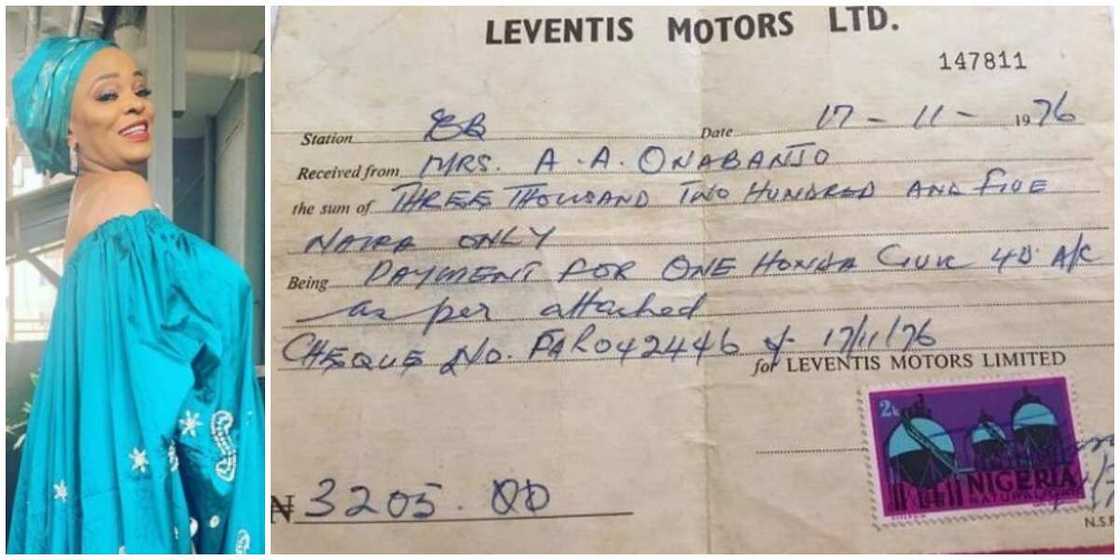 LEVENTIS MOTORS LTD.
147811
Station EB Date 17 - 11 - 1976
Received from MRS. A. A. ONABANJO
the sum of THREE THOUSAND TWO HUNDRED AND FIVE
NAIRA ONLY
Being PAYMENT FOR ONE HONDA 4D A/C
as per attached
CHEQUE NO. PAR042446 of 17/11/76
for LEVENTIS MOTORS LIMITED
2k
NIGERIA
NATURAL GAS
₦ 3205.00